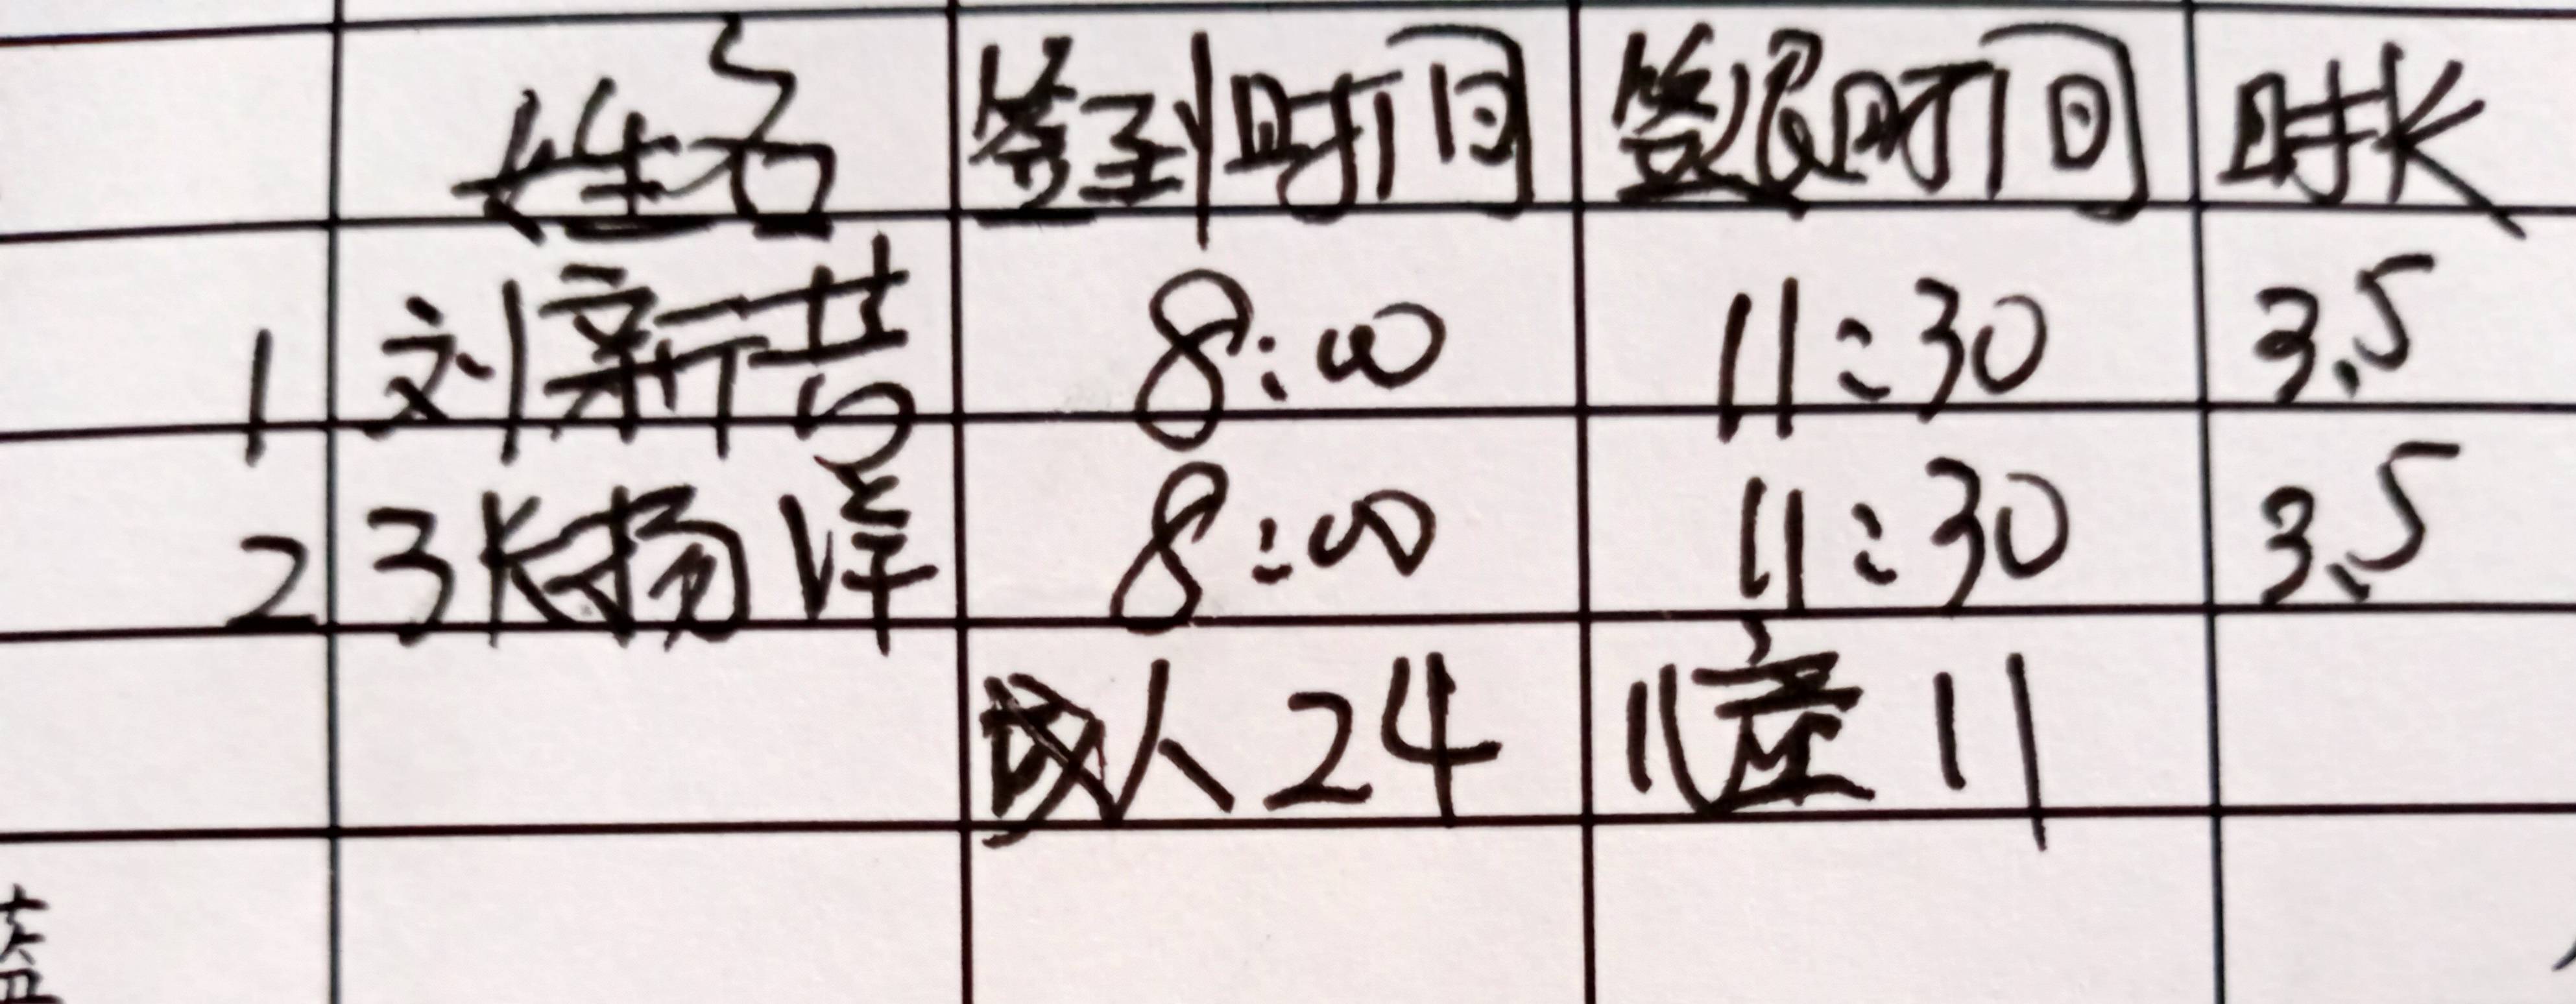 姓名 签到时间 签退时间 时长
1 刘新昔 8:00 11:30 3.5
2 张扬洋 8:00 11:30 3.5
成人 24 儿童 11